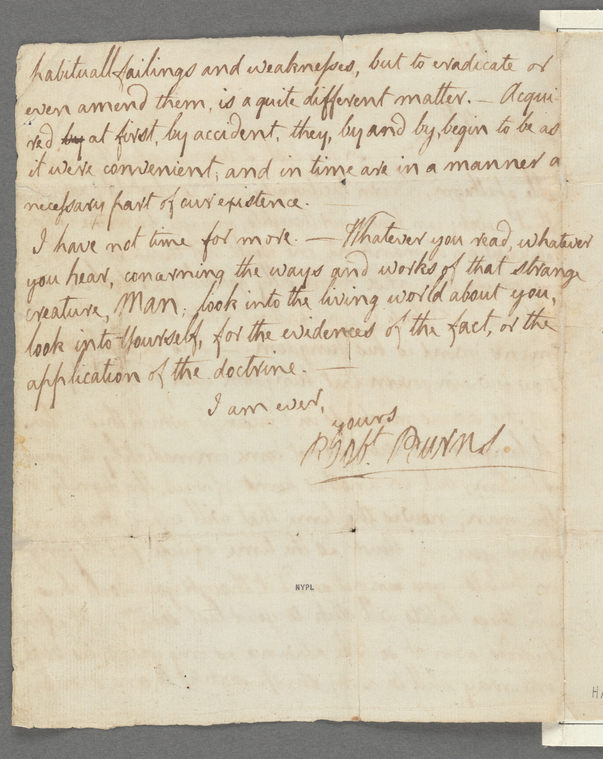 habituall failings and weaknesses, but to eradicate or
even amend them, is a quite different matter. — Acqui-
red by at first, by accident, they, by and by, begin to be as
it were convenient; and in time are in a manner a
necessary part of our existence. —
I have not time for more. — Whatever you read, whatever
you hear, concerning the ways and works of that strange
creature, MAN; look into the living world about you,
look into Yourself, for the evidences of the fact, or the
application of the doctrine. —
I am ever,
yours
Robt. Burns.
NYPL